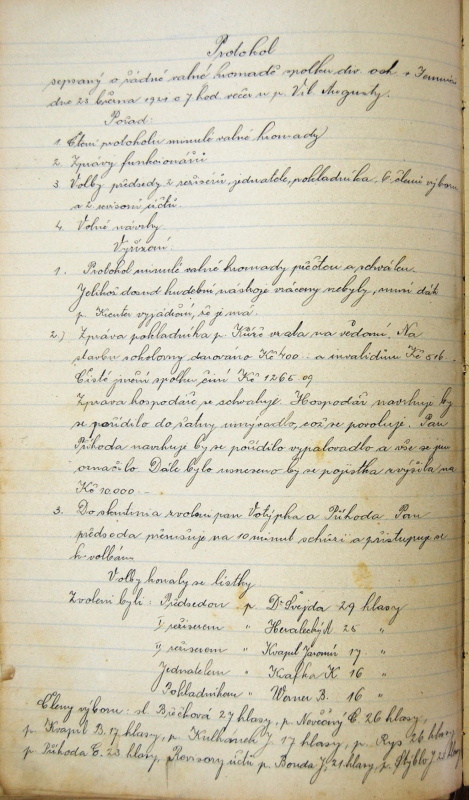 Protokol
sepsaný o řádné valné hromadě spolku div. och. v
dne 23 března 1921 o 7 hod. večer u p. Vil. Augusty.
Pořad:
1. Čtení protokolu minulé valné hromady
2. Zprávy funkcionářů
3. Volby předsedy 2 režisérů, jednatele, pokladníka, 6 členů výboru
a 2 revisorů účtů.
4. Volné návrhy.
Vyřízení:
1. Protokol minulé valné hromady přečten a schválen.
Jelikož dosud hudební nástroje vráceny nebyly, musí dát
p. vyjádření, že je má.
2) Zpráva pokladníka p. vzata na vědomí. Na
stavbu sokolovny darováno Kč 400 – a invalidům Kč 516 –
Čisté jmění spolku činí Kč 1265.09
Zpráva hospodáře se schvaluje. Hospodář navrhuje by
se pořídilo do šatny umyvadlo, což se povoluje. Pan
Příhoda navrhuje by se pořídilo vypalovadlo a vše se jím
označilo. Dále bylo usneseno by se pojistka zvýšila na
Kč 10.000 –
3. Do skrutinia zvoleni pan Votýpka a Příhoda. Pan
předseda přerušuje na 10 minut schůzi a přistupuje se
k volbám.
Volby konaly se lístky
Zvoleni byli: Předsedou p. Dr Švejda 29 hlasy
I režiserem " Heralecký A 25 "
II režiserem " Kvapil Jaromír 17. "
Jednatelem " Kafka K 16 "
Pokladníkem " Werner B. 16 "
Členy výboru: sl. Bučková 27 hlasy, p. Novečný C 26 hlasy,
p. Kvapil B. 17 hlasy, p. Kulhanek J. 17 hlasy, p. Rys 26 hlasy
p. Příhoda C. 23 hlasy, Revisory účtů p. Bouda J. 21 hlasy, p. Stýblo J. 23 hlasy